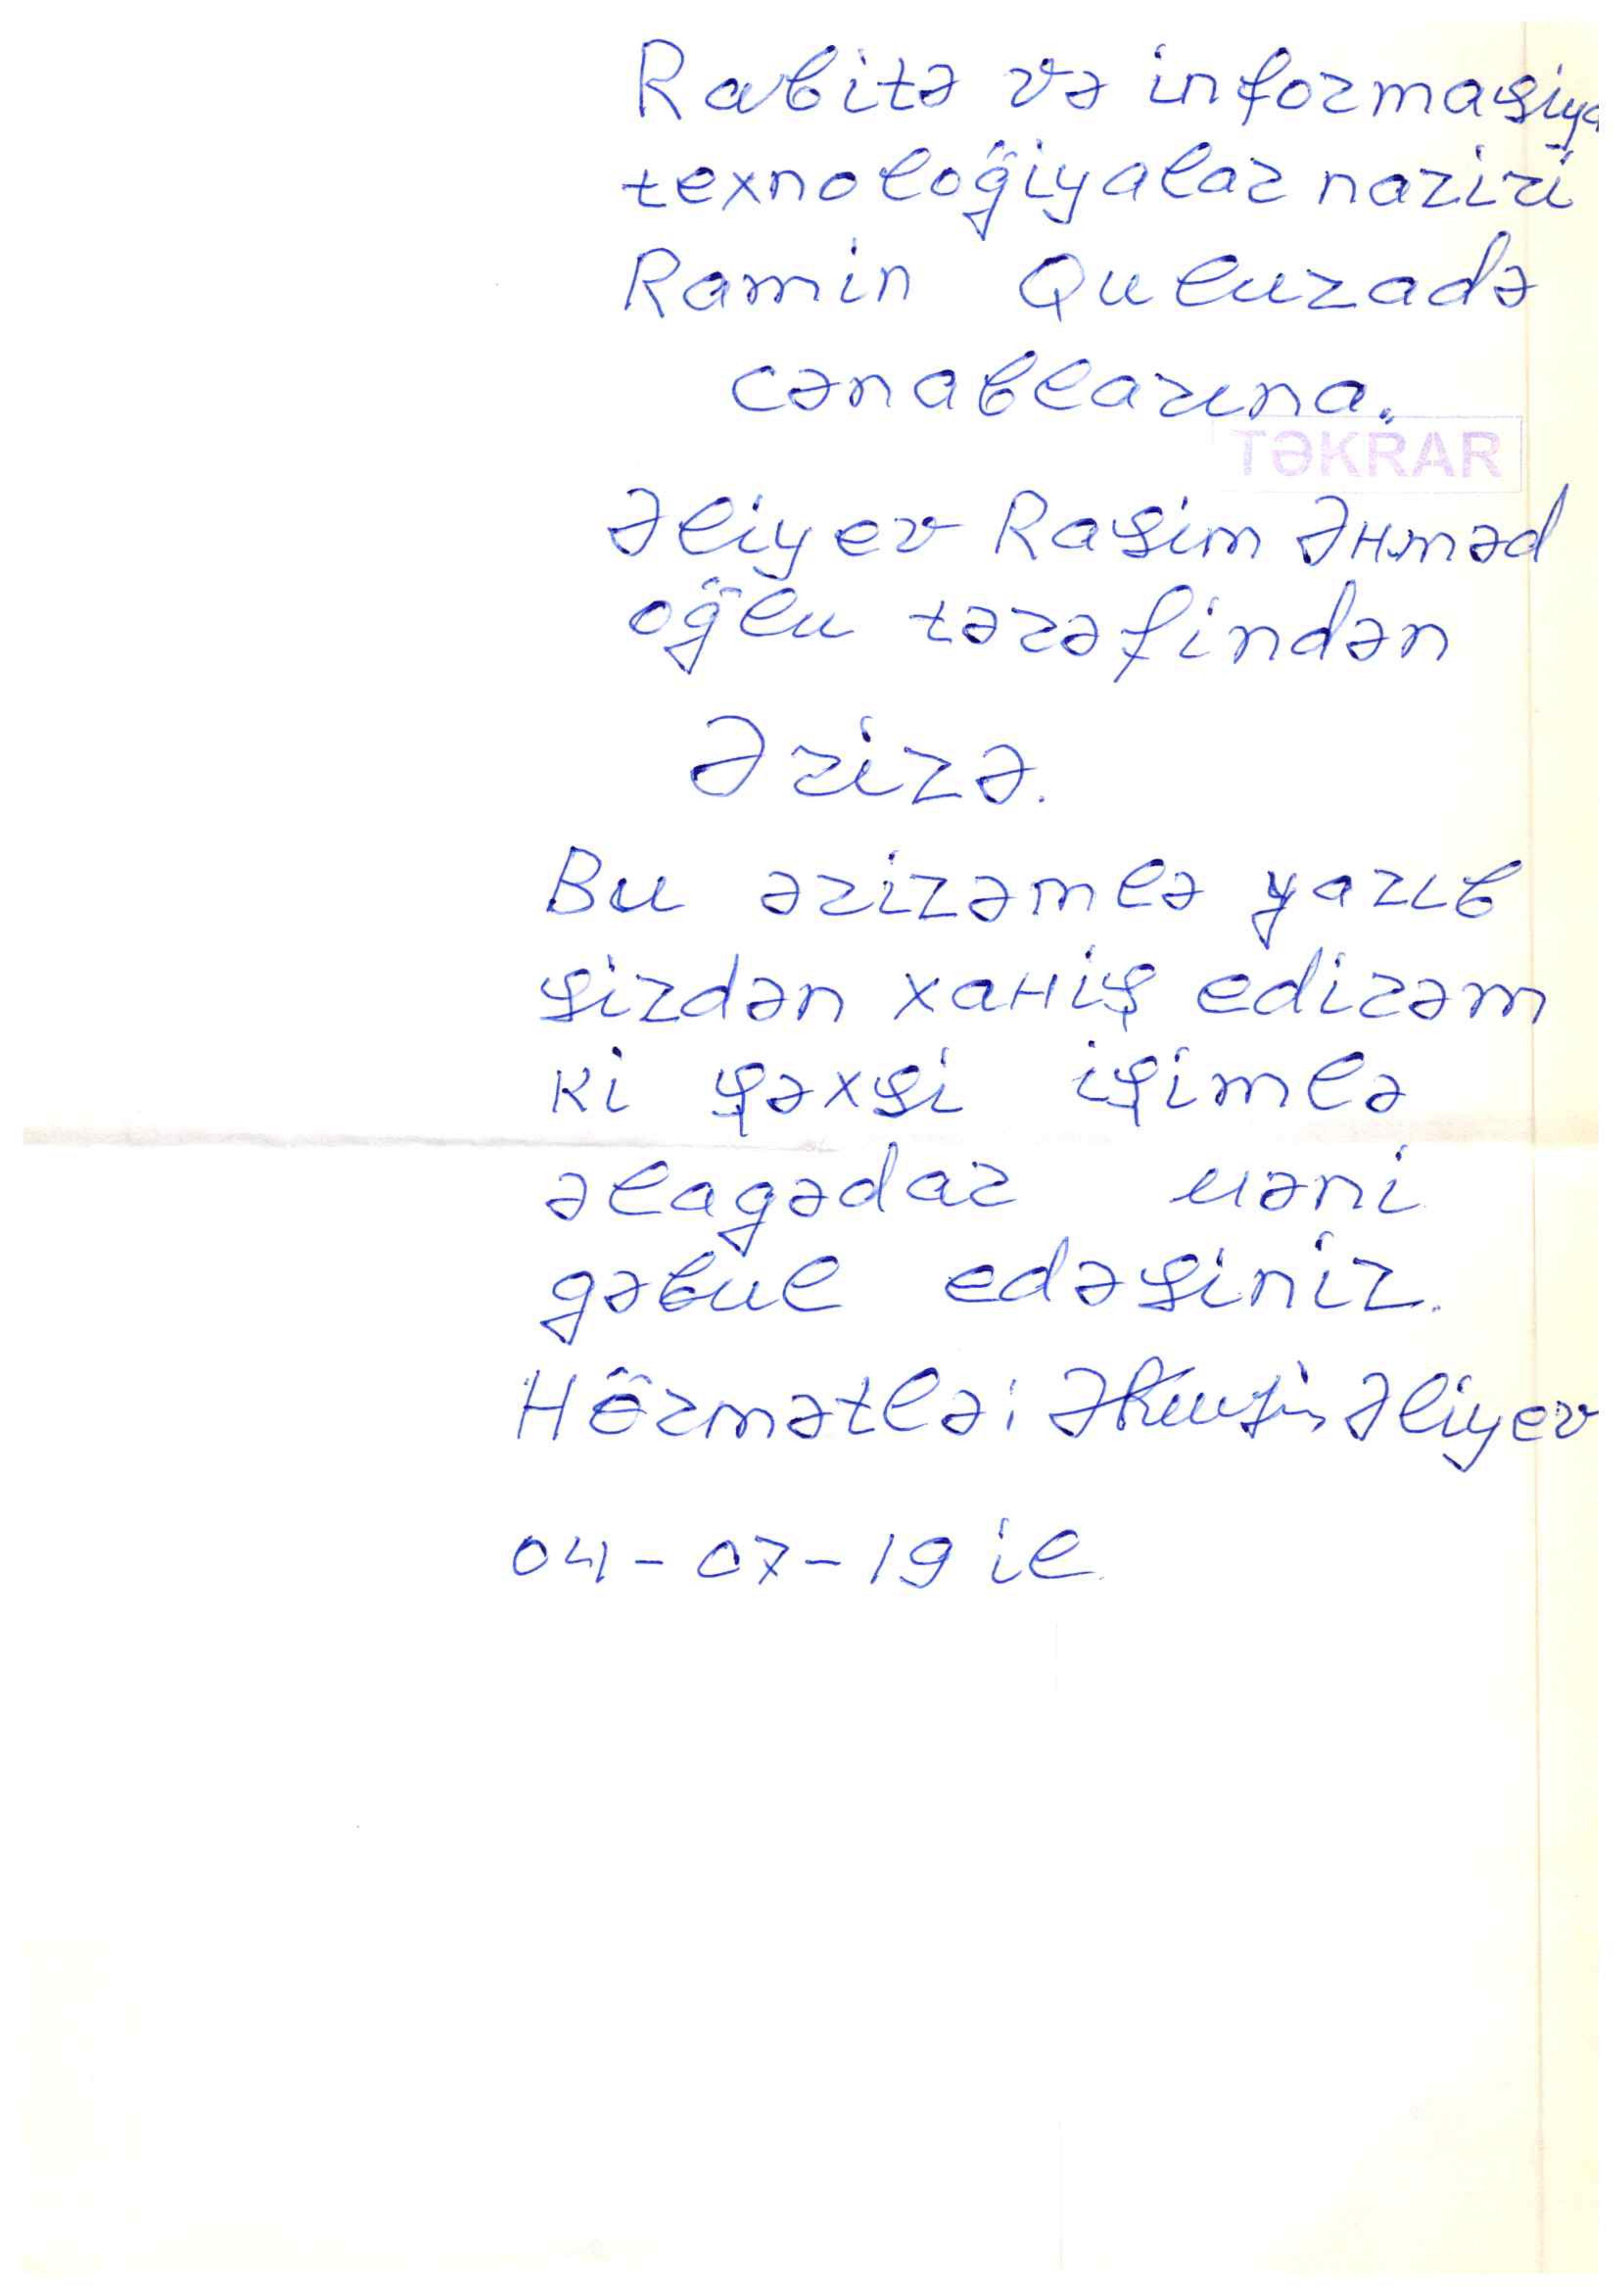 Rabitə və informasiya
texnoloğiyalar naziri
Ramin Quluzadə
cənablarına.
TƏKRAR
Əliyev Rasim Əhməd
oğlu tərəfindən
Ərizə.
Bu ərizəmlə yazıb
sizdən xahiş edirəm
ki şəxsi işimlə
əlagədar məni
gəbul edəsiniz.
Hörmətlə: Əliyev
04-07-19 il